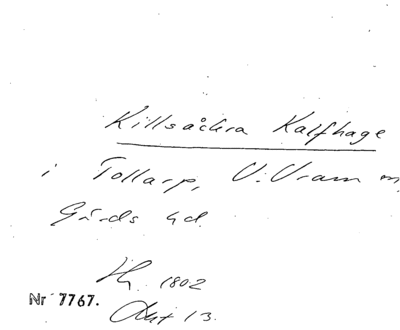 Killsåckra Kalfhage
i Tollarp, V. Vram sn,
Gärds hd.
1802
Nr 7767.
Akt 13.